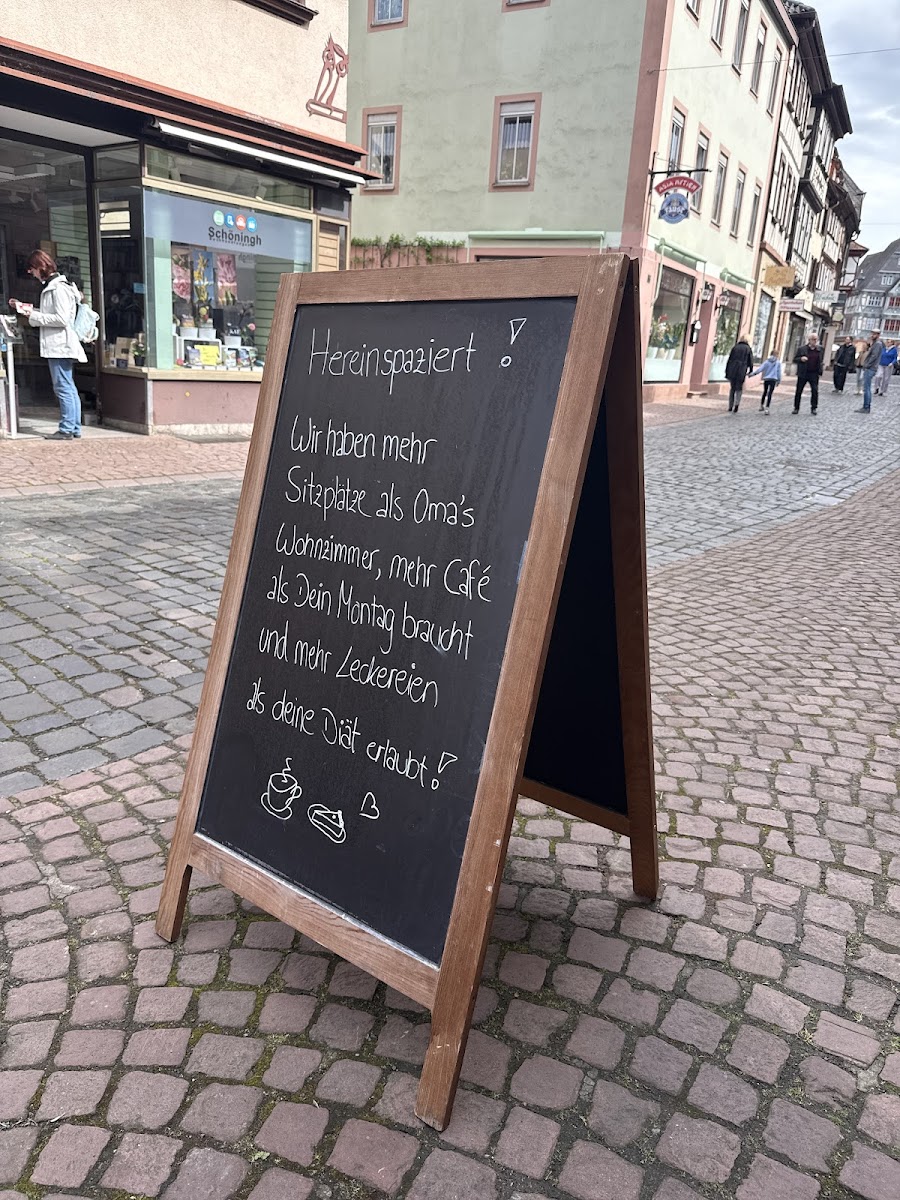 Schöningh
Hereinspaziert !
Wir haben mehr
Sitzplätze als Oma's
Wohnzimmer, mehr Café
als Dein Montag braucht
und mehr Leckereien
als deine Diät erlaubt!